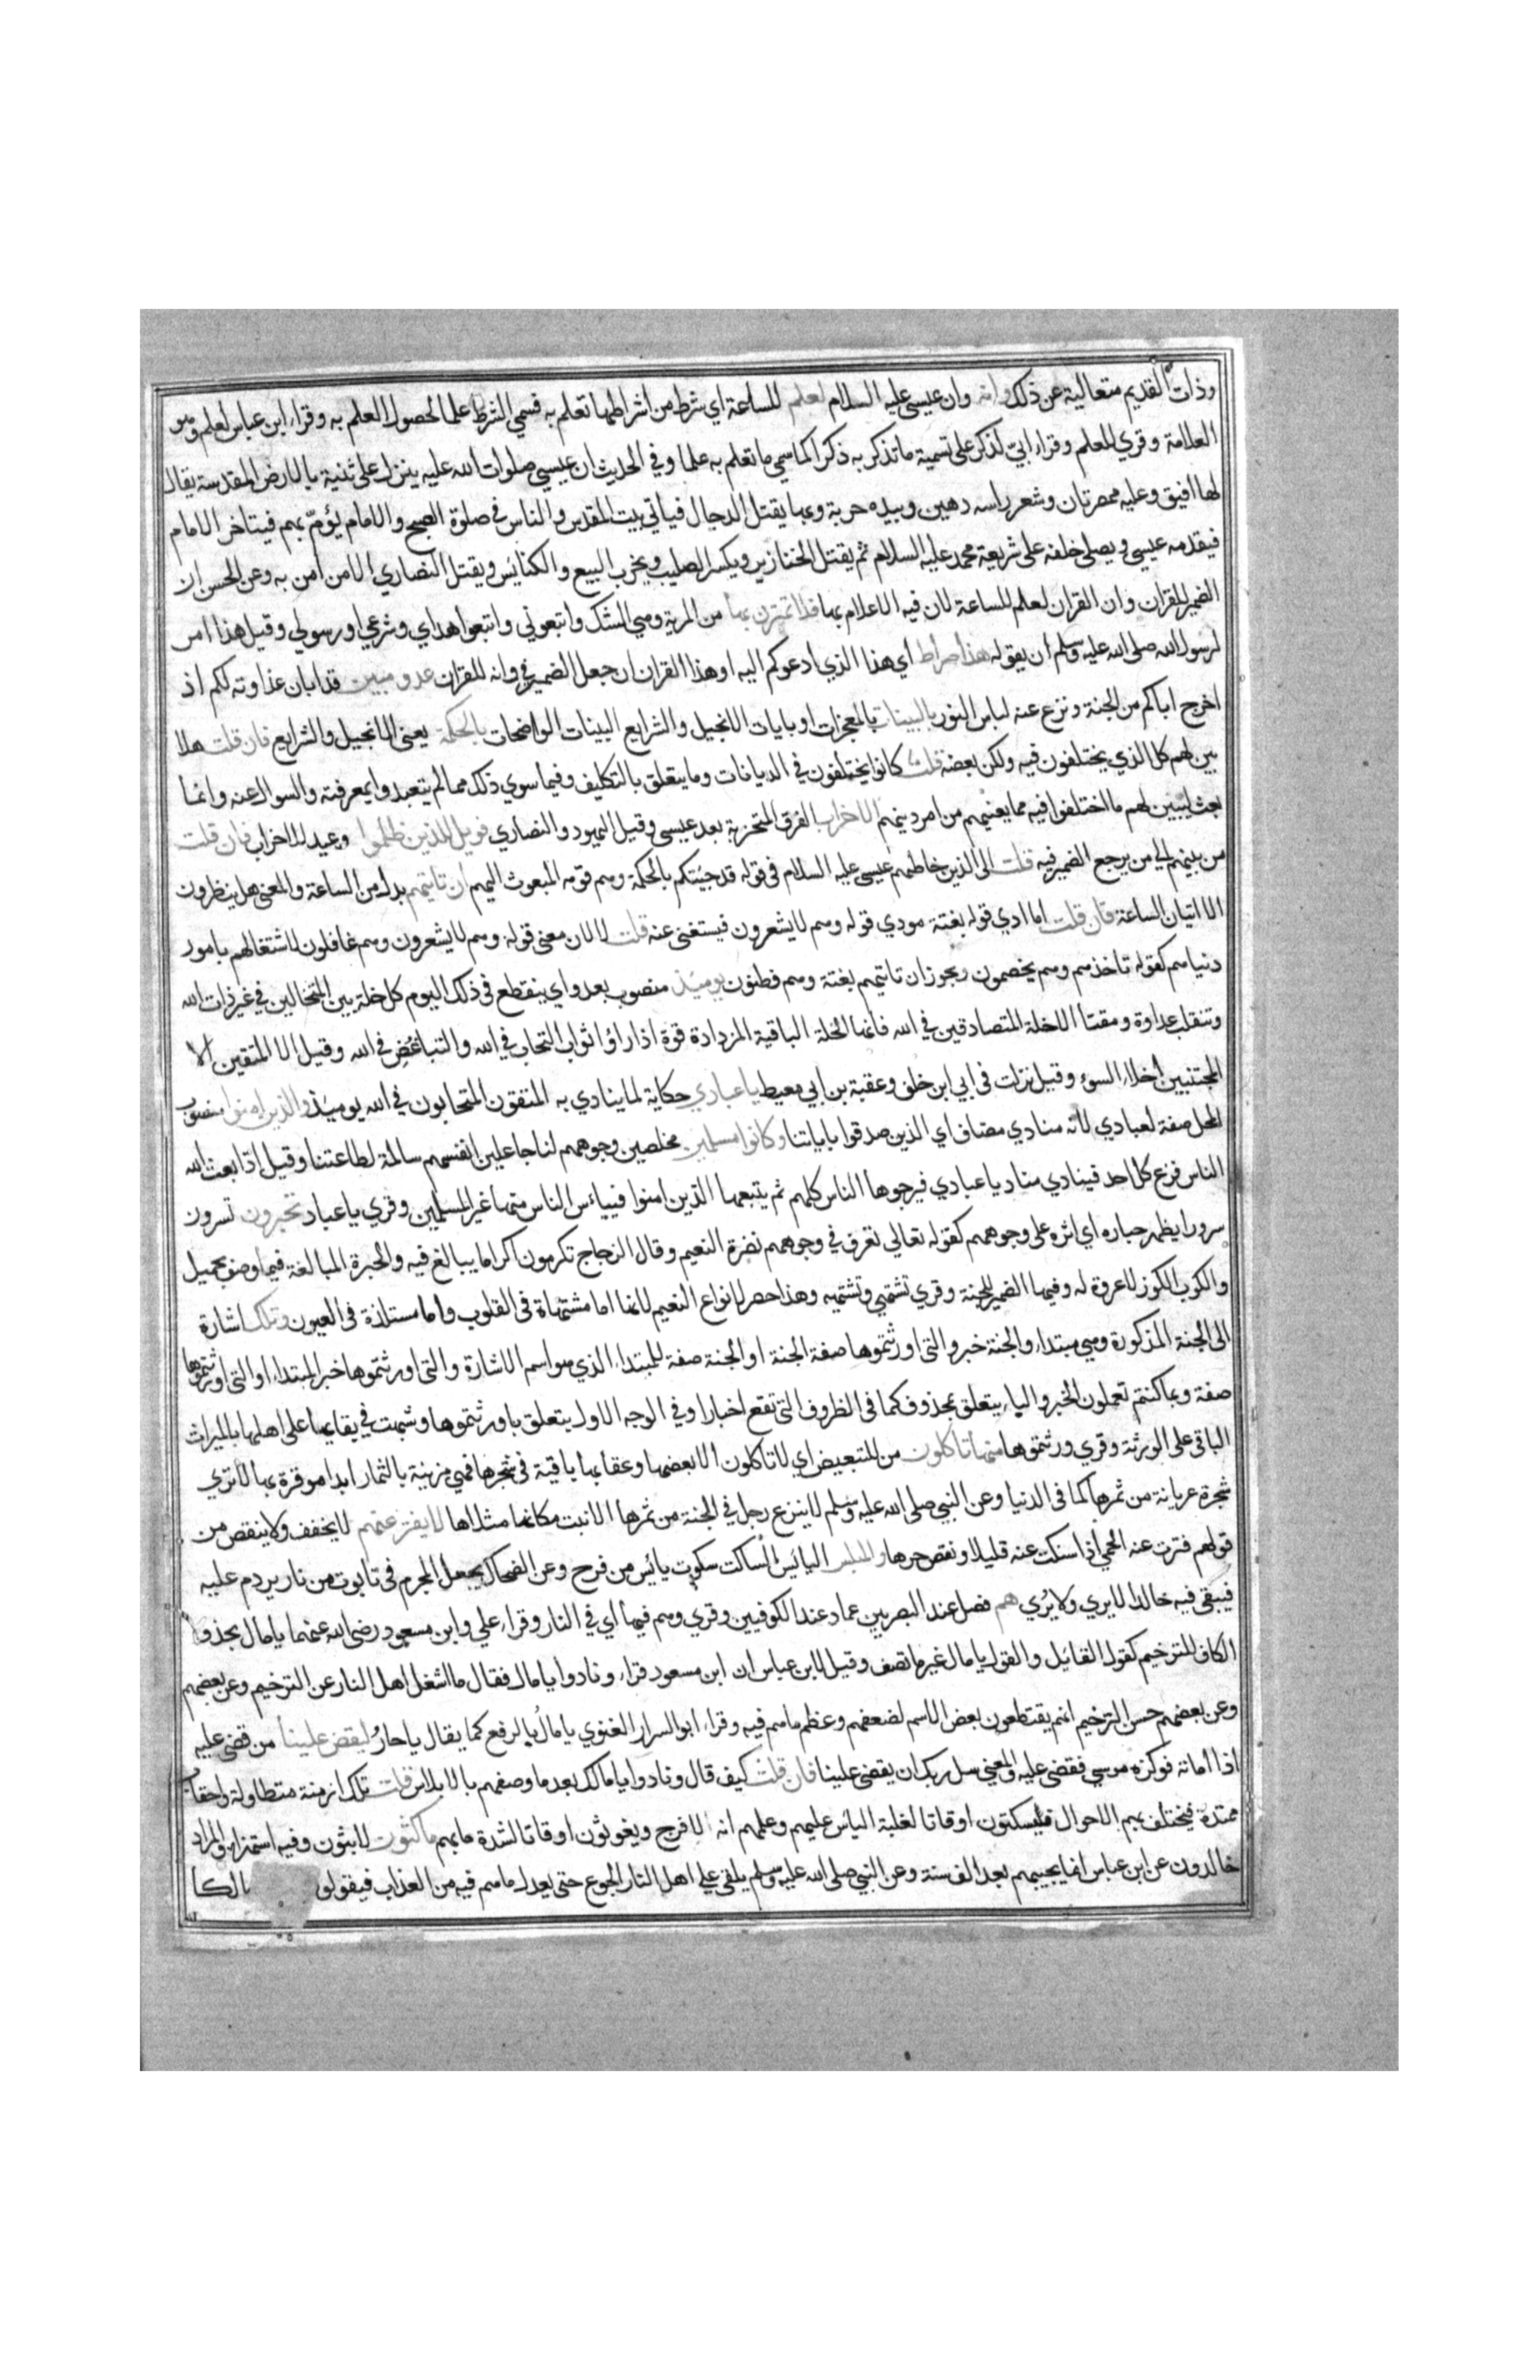 وذات القديم متعالية عن ذلك وانه وان عيسى عليه السلام لعلم للساعة اي شرط من اشراطها تعلم به فسمي الشرط علما لحصول العلم به وقراء ابن عباس لعلم وهو
العلامة وقري للعلم وقراء ابيّ لذكر على تسمية ما تذكر به ذكرا كما سمي ما تعلم به علما وفي الحديث ان عيسى صلوات الله عليه ينزل على ثنية بالارض المقدسة يقال
لها افيق وعليه ممصرتان وشعر راسه دهين وبيده حربة وبها يقتل الدجال فياتي بيت المقدس والناس في صلوة الصبح والامام يؤمّ بهم فيتاخر الامام
فيقدمه عيسى ويصلي خلفه على شريعة محمد عليه السلام ثم يقتل الخنازير ويكسر الصليب ويخرب البيع والكنايس ويقتل النصاري الا من امن به وعن الحسن ان
الضمير للقران وان القران لعلم للساعة لان فيه الاعلام بها فلا تمترن بها من المرية وهي الشك واتبعوني واتبعوا هداي وشرعي او رسولي وقيل هذا امر
لرسول الله صلى الله عليه وسلم ان يقوله هذا صراط اي هذا الذي ادعوكم اليه او هذا القران ان جعل الضمير في وانه للقران عدو مبين قد ابان عداوته لكم اذ
اخرج اباكم من الجنة ونزع عنه لباس النور بالبينات بالمعجزات او بايات الانجيل والشرايع البينات الواضحات بالحكمة يعني الانجيل والشرايع فان قلت هلا
بين لهم كل الذي يختلفون فيه ولكن بعضه قلت كانوا يختلفون في الديانات وما يتعلق بالتكليف وفيما سوي ذلك مما لم يتعبدوا بمعرفته والسوال عنه وانما
بعث ليبين لهم ما اختلفوا فيه مما يعنيهم من امر دينهم الاحزاب الفرق المتحزبة بعد عيسى وقيل اليهود والنصاري فويل للذين ظلموا وعيد للاحزاب فان قلت
من بينهم الي من يرجع الضمير فيه قلت الى الذين خاطبهم عيسى عليه السلام في قوله قد جيتكم بالحكمة وهم قومه المبعوث اليهم ان تاتيهم بدل من الساعة والمعنى هل ينظرون
الا اتيان الساعة فان قلت اما ادي قوله بغتة مودي قوله وهم لا يشعرون فيستغنى عنه قلت لا لان معنى قوله وهم لا يشعرون وهم غافلون لاشتغالهم بامور
دنياهم كقوله تاخذهم وهم يخصمون ويجوز ان تاتيهم بغتة وهم فطنون يوميذ منصوب بعدو اي ينقطع في ذلك اليوم كل خلة بين المتخالين في غير ذات الله
وتنقلب عداوة ومقتا الا خلة المتصادقين في الله فانها الخلة الباقية المزدادة قوة اذا راوا ثواب التحاب في الله والتباغض في الله وقيل الا المتقين الا
المجتنبين اخلاء السوء وقيل نزلت في ابي ابن خلف وعقبة بن ابي معيط يا عبادي حكاية لما ينادي به المتقون المتحابون في الله يوميذ والذين امنوا منصوب
المحل صفة لعبادي لانه منادي مضاف اي الذين صدقوا باياتنا وكانوا مسلمين مخلصين وجوههم لنا جاعلين انفسهم سالمة لطاعتنا وقيل اذا بعث الله
الناس فزع كل احد فينادي مناد يا عبادي فيرجوها الناس كلهم ثم يتبعها الذين امنوا فيياءس الناس منها غير المسلمين وقري يا عباد تحبرون تسرون
سرورا يظهر حباره اي اثره على وجوههم كقوله تعالى تعرف في وجوههم نضرة النعيم وقال الزجاج تكرمون اكراما يبالغ فيه والحبرة المبالغة فيما وصف بجميل
والكوب الكوز لا عروة له وفيها الضمير للجنة وقري تشتهي وتشتهيه وهذا حصر لانواع النعيم لانها اما مشتهاة في القلوب واما مستلذة في العيون وتلك اشارة
الى الجنة المذكورة وهي مبتداء والجنة خبر والتي اورثتموها صفة الجنة او الجنة صفة للمبتداء الذي هو اسم الاشارة والتي اورثتموها خبر المبتداء او التي اورثتموها
صفة وبما كنتم تعملون الخبر والباء يتعلق بمحذوف كما في الظروف التي تقع اخبارا وفي الوجه الاول يتعلق باورثتموها وشبهت في بقايها على اهلها بالميراث
الباقي على الورثة وقري ورثتموها منها تاكلون من للتبعيض اي لا تاكلون الا بعضها وعقابها باقية في شجرها فهي مزينة بالثمار ابدا موقرة بها لا تري
شجرة عريانة من ثمرها كما في الدنيا وعن النبي صلى الله عليه وسلم لا ينزع رجل في الجنة من ثمرها الا نبت مكانها مثلاها لا يفتر عنهم لا يخفف ولا ينقص من
قولهم فترت عنه الحمي اذا سكنت عنه قليلا ونقص حرها والمبلس اليائس الساكت سكوت يائس من فرح وعن الضحاك يجعل المجرم في تابوت من نار يردم عليه
فيبقى فيه خالدا لا يري ولا يُري هم فصل عند البصريين عماد عند الكوفيين وقري وهم فيها اي في النار وقراء علي وابن مسعود رضي الله عنهما يا مال بحذف
الكاف للترخيم كقول القائل والقول يا مال غير ما تصف وقيل لابن عباس ان ابن مسعود قراء ونادوا يا مال فقال ما اشغل اهل النار عن الترخيم وعن بعضهم
وعن بعضهم حسن الترخيم انهم يقتطعون بعض الاسم لضعفهم وعظم ما هم فيه وقراء ابو السرار الغنوي يا مالُ بالرفع كما يقال يا حارُ ليقض علينا من قضى عليه
اذا اماته فوكزه موسي فقضي عليه والمعني سل ربك ان يقضي علينا فان قلت كيف قال ونادوا يا مالك بعد ما وصفهم بالابلاس قلت تلك ازمنة متطاولة واحقاب
ممتدة فيختلف بهم الاحوال فيسكتون اوقاتا لغلبة الياس عليهم وعلمهم انه لا فرج ويغوثون اوقاتا لشدة ما بهم ماكثون لابثون وفيه استهزاء والمراد
خالدون عن ابن عباس انما يجيبهم بعد الف سنة وعن النبي صلى الله عليه وسلم يلقى علي اهل النار الجوع حتى يعدل ما هم فيه من العذاب فيقولو مالكا